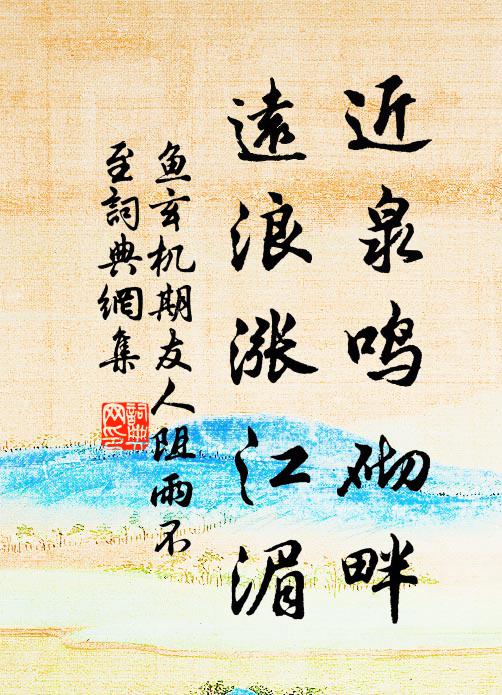 近泉鸣砌畔
遠浪漲江湄
鱼玄机期友人阻雨不
至詞典網集
詞典
网印